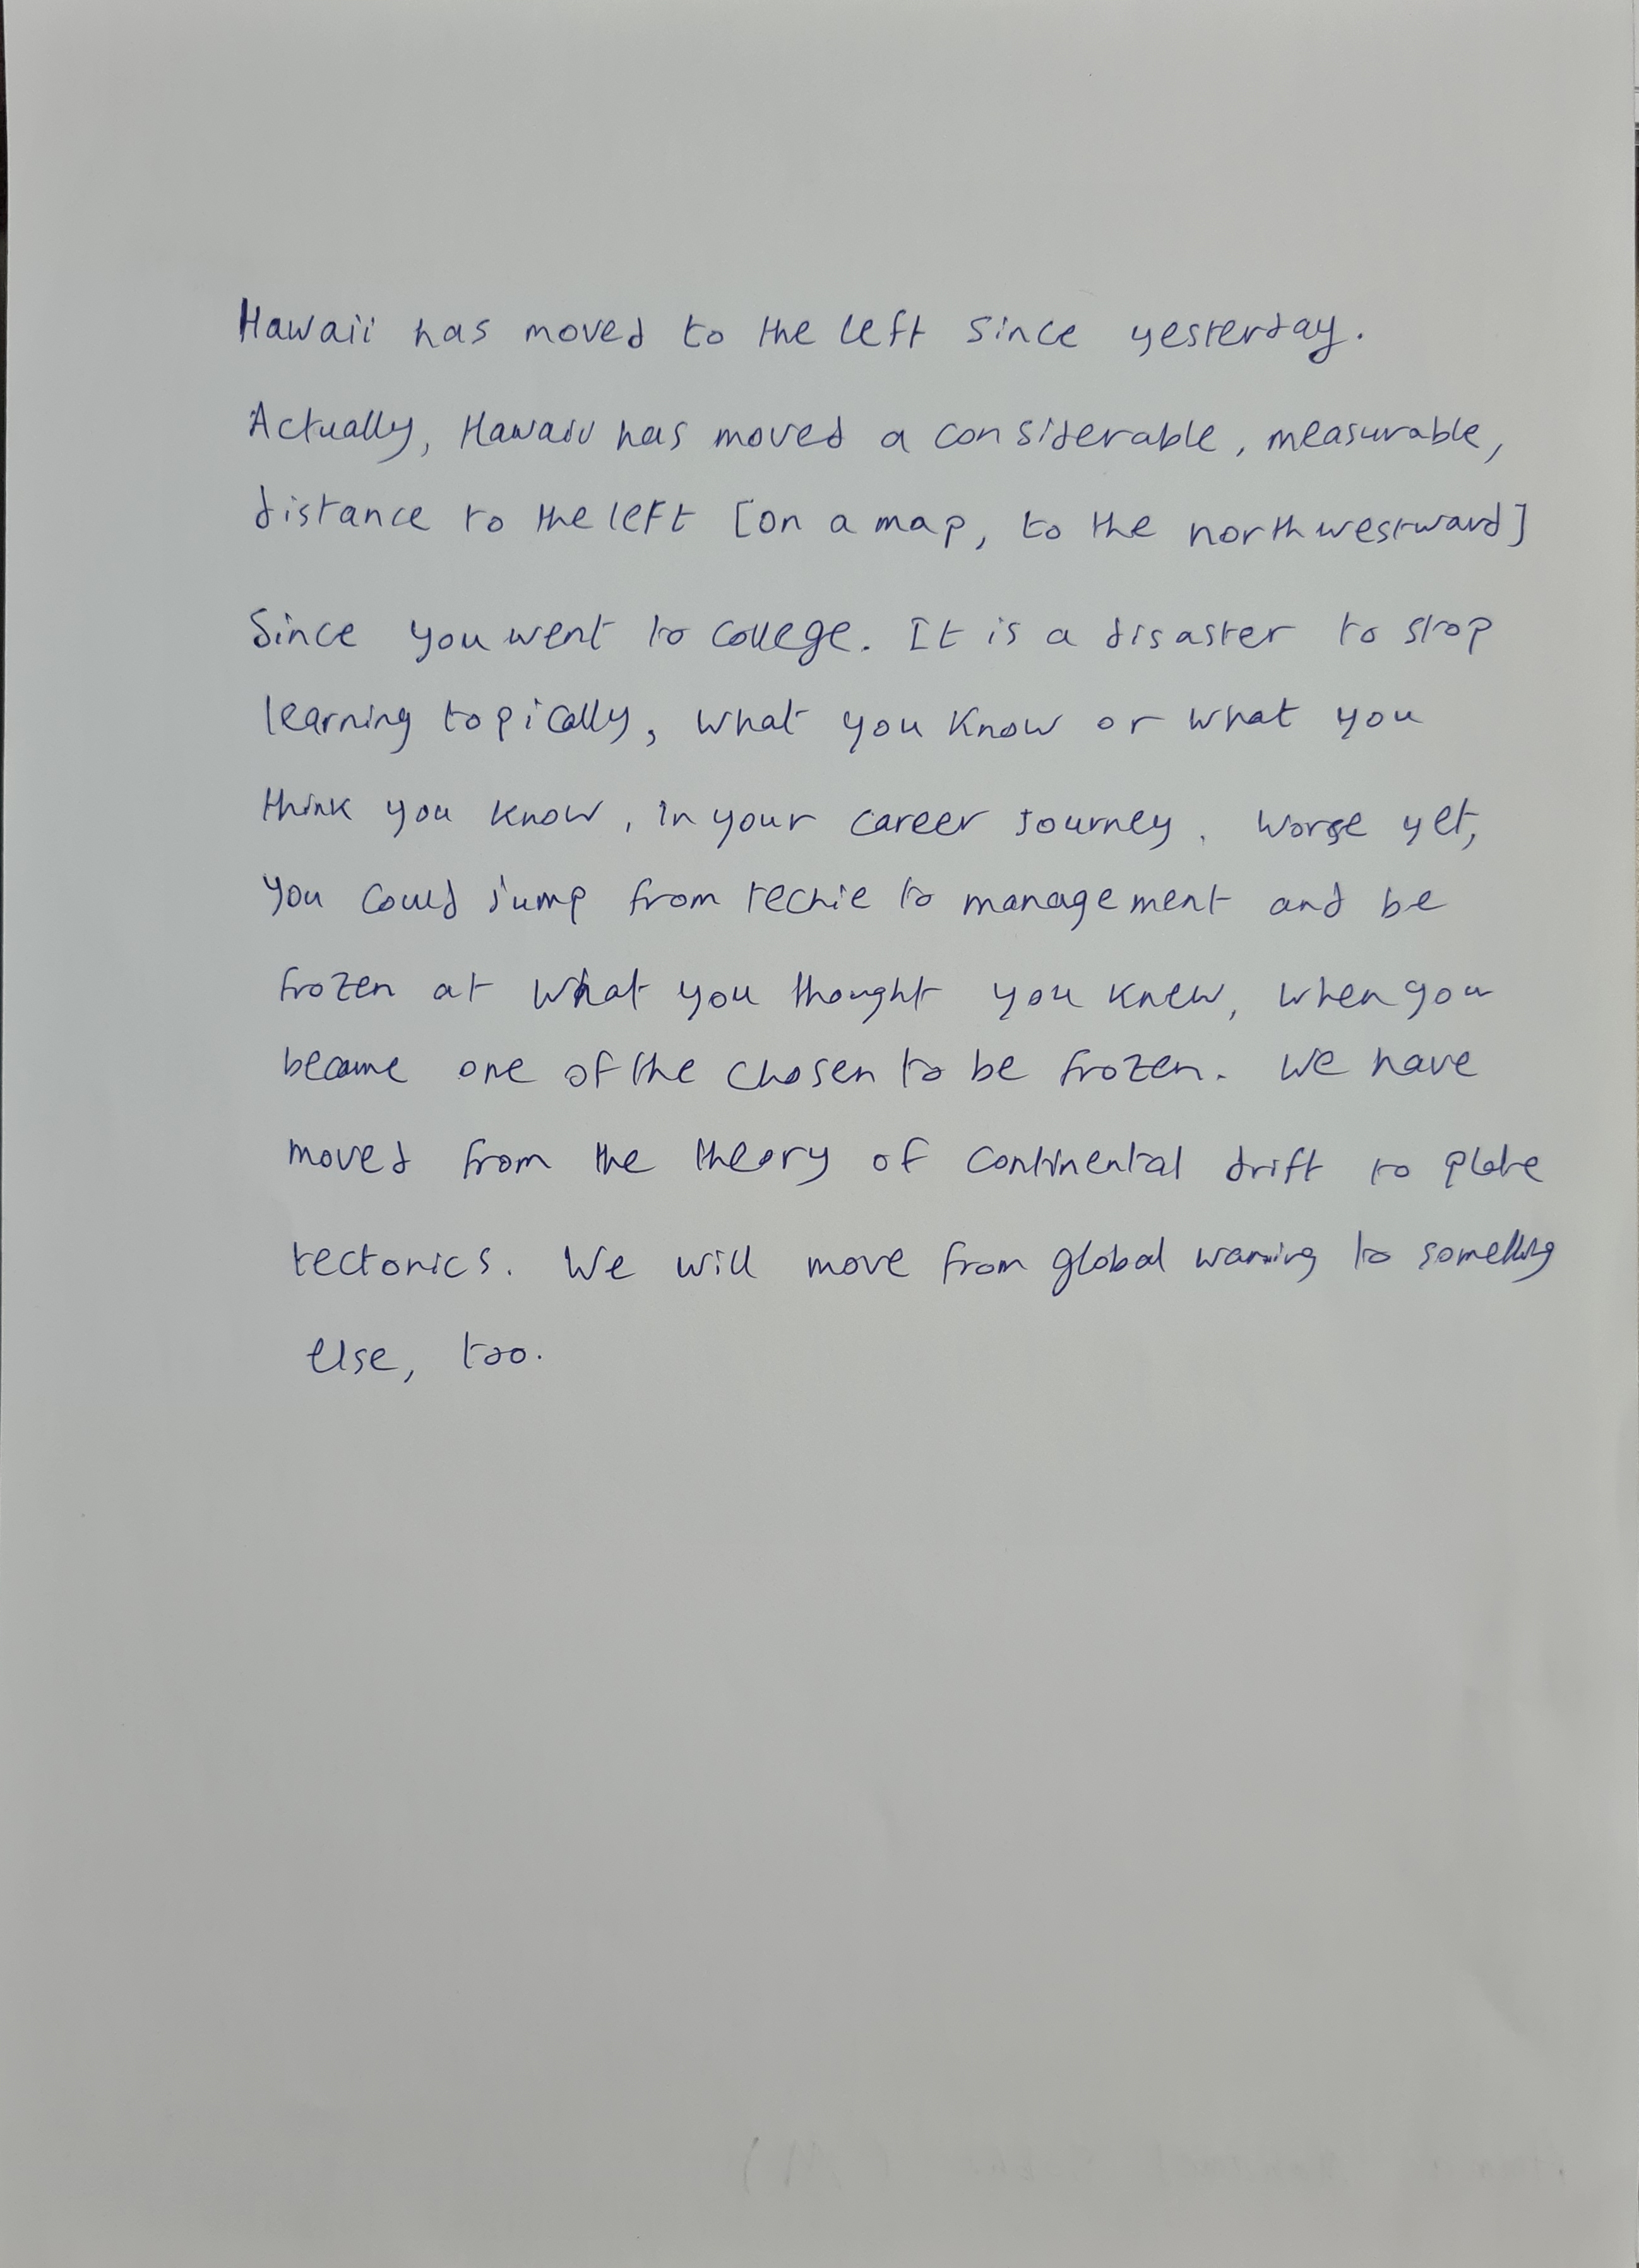 Hawaii has moved to the left since yesterday.
Actually, Hawaii has moved a considerable, measurable,
distance to the left [on a map, to the northwestward]
Since you went to college. It is a disaster to stop
learning topically, what you know or what you
think you know, in your career journey. Worse yet,
you could jump from techie to management and be
frozen at what you thought you knew, when you
became one of the chosen to be frozen. We have
moved from the theory of continental drift to plate
tectonics. We will move from global warming to something
else, too.